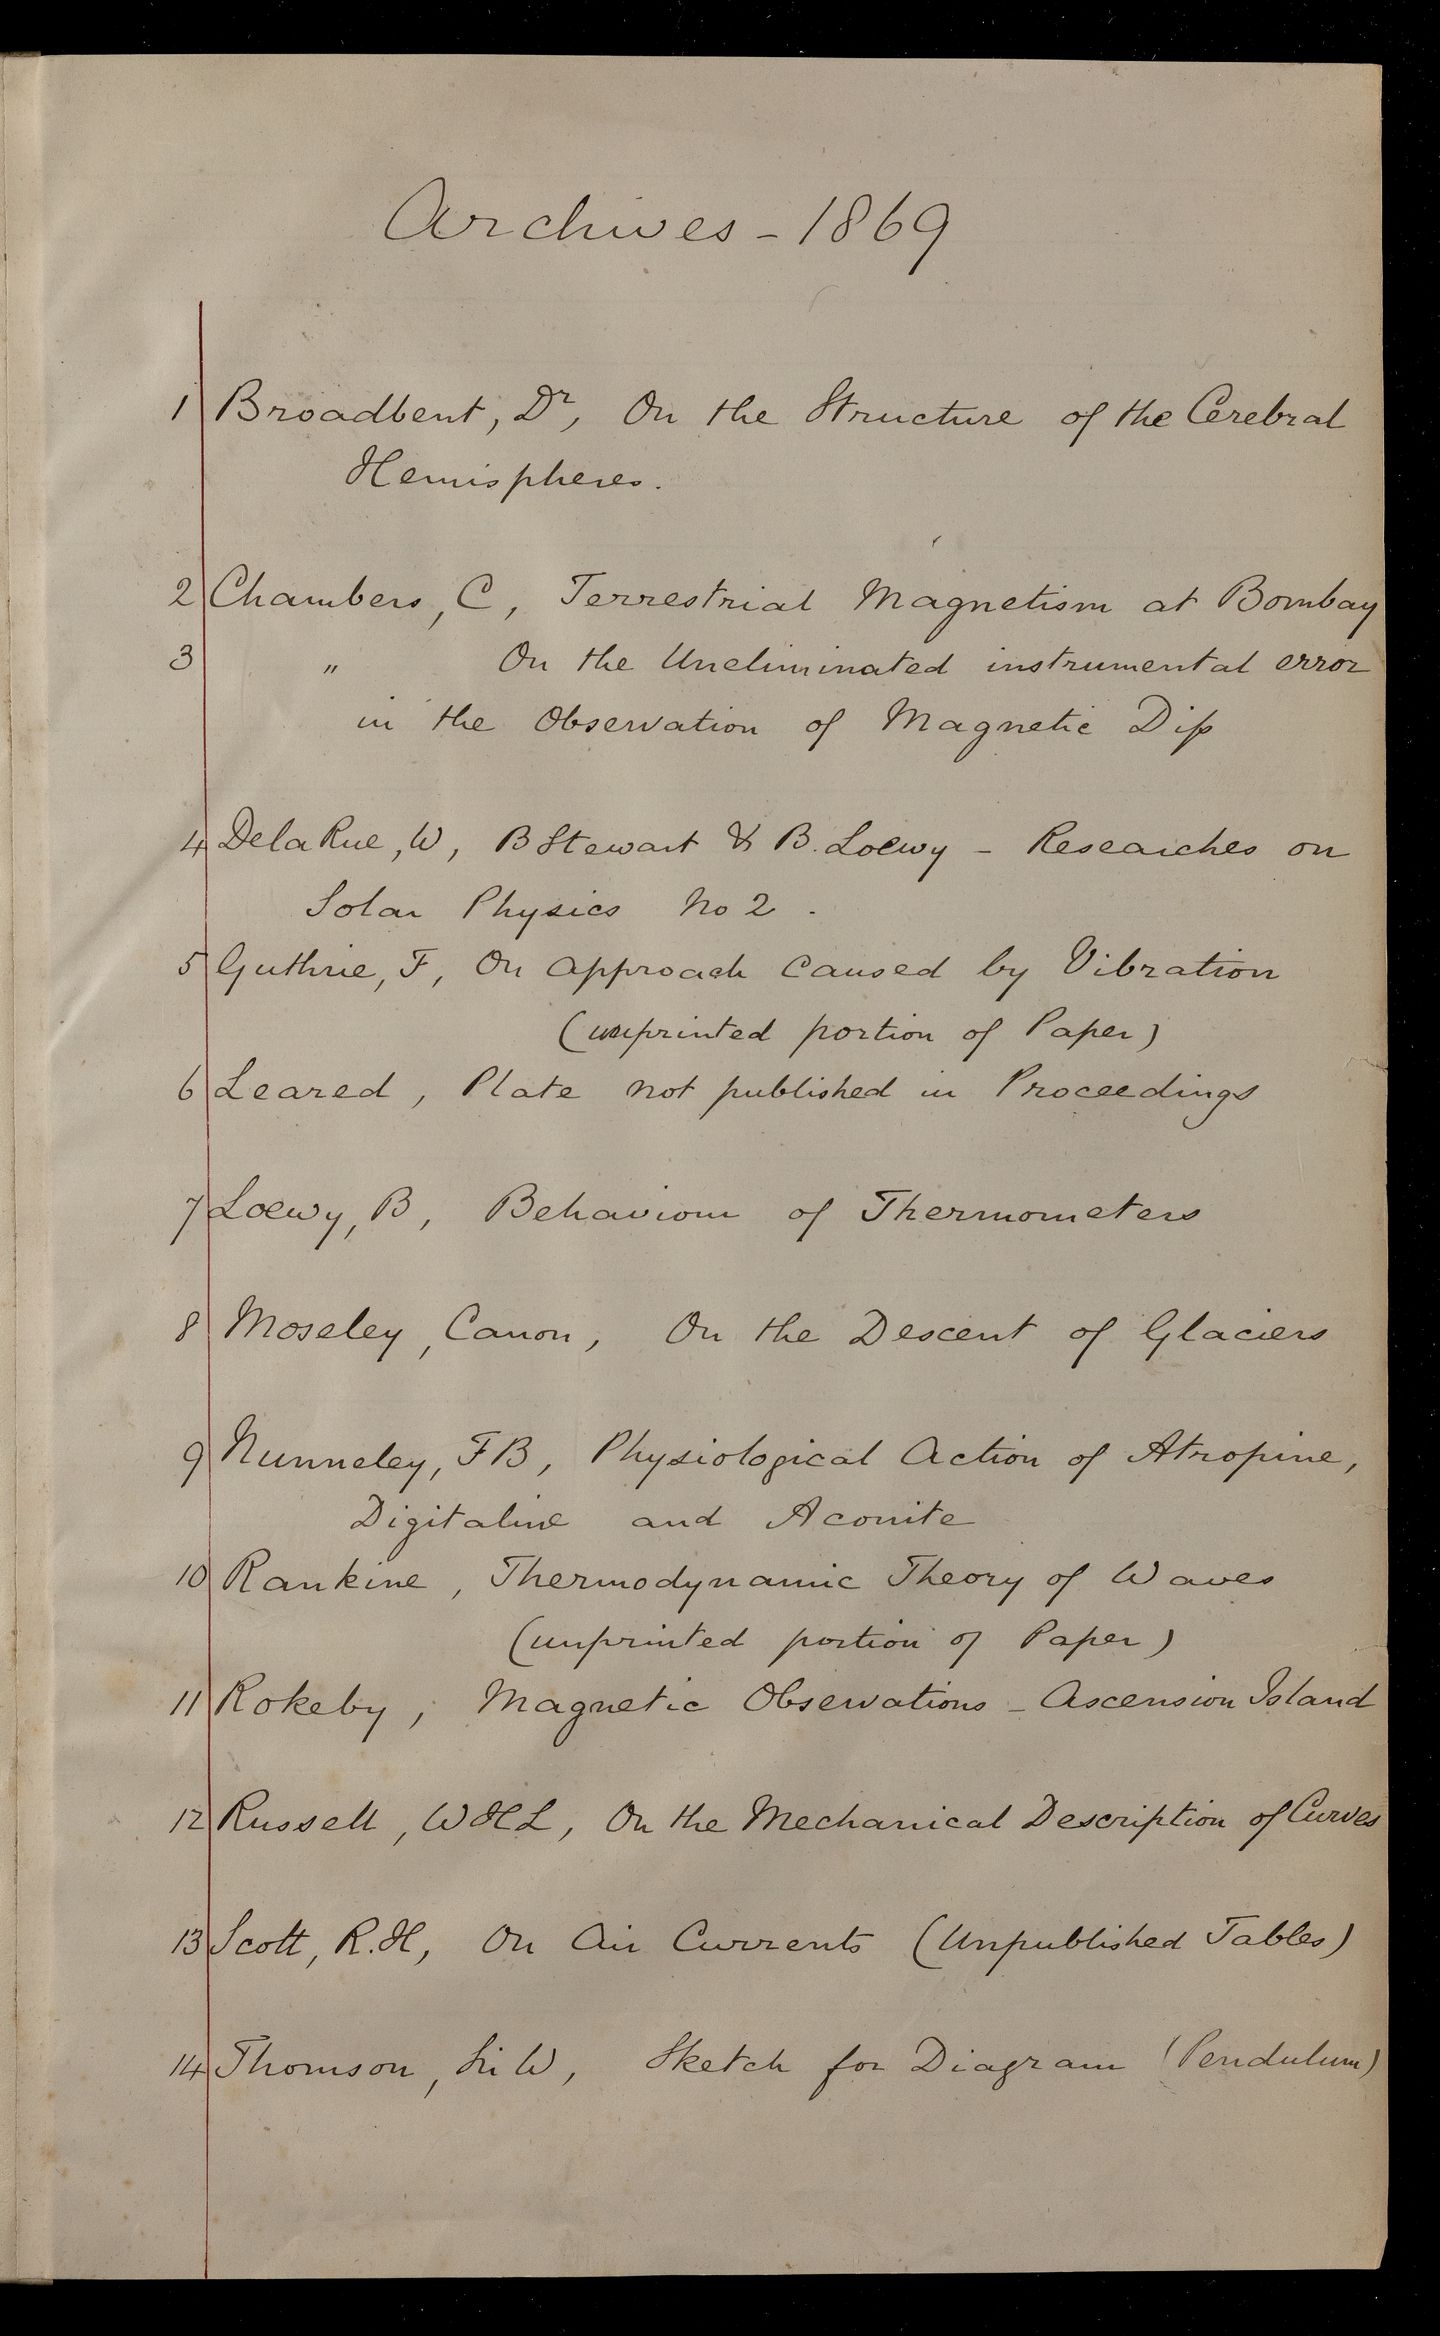 Archives - 1869
1 Broadbent, Dr, On the Structure of the Cerebral
Hemispheres.
2 Chambers, C, Terrestrial Magnetism at Bombay
3 " On the Uneliminated instrumental error
in the Observation of Magnetic Dip
4 De la Rue, W, B Stewart & B. Loewy - Researches on
Solar Physics No 2.
5 Guthrie, F, On Approach Caused by Vibration
(unprinted portion of Paper)
6 Leared, Plate not published in Proceedings
7 Loewy, B, Behaviour of Thermometers
8 Moseley, Canon, On the Descent of Glaciers
9 Nunneley, F B, Physiological Action of Atropine,
Digitaline and Aconite
10 Rankine, Thermodynamic Theory of Waves
(unprinted portion of Paper)
11 Rokeby, Magnetic Observations - Ascension Island
12 Russell, W H L, On the Mechanical Description of Curves
13 Scott, R.H, On Air Currents (Unpublished Tables)
14 Thomson, Sir W, Sketch for Diagram (Pendulum)